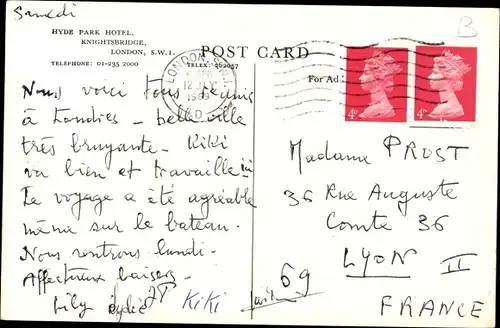 Samedi
B
HYDE PARK HOTEL,
KNIGHTSBRIDGE,
LONDON, S.W.1.
TELEPHONE: 01-235 2000
TELEX: 262057
POST CARD
For Ad
LONDON S.W.
12
1969
D
4D
4D
Nous voici tous réunis
à Londres – belle ville
très bruyante – Kiki
va bien et travaille
Le voyage a été agréable
même sur le bateau.
Nous rentrons lundi –
Affectueux baisers –
Lily Lydie JY KiKi
Madame PROST
36 Rue Auguste
Comte 36
LYON II
69
FRANCE